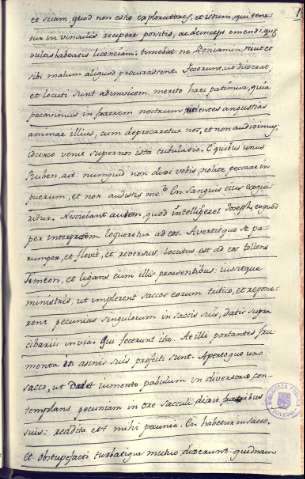 et sciam quod non estis exploratores, et istum, qui tene
tur in vinculis recipere possitis, ac deinceps emendi quę
vultis habeatis licentiam: timebat ne Beniamin
sibi malum aliquid procurassent.
et locuti sunt ad invicem: merito haec patimur, quia
peccavimus in fratrem nostrum, videntes angustias
animae illius, cum deprecaretur nos, et non audivimus,
idcirco venit super nos ista tribulatio. E quibus unus
Ruben, ait: numquid non dixi vobis nolite peccare in
puerum, et non audistis me? En sanguis eius exqui
ritur. Nesciebant autem, quod intelligeret Ioseph, eo quod
per interpretem loqueretur ad eos. Avertitque se pa
rumper, et flevit, et reversus locutus est ad eos. tollens
Simeon, et ligans eum illis praesentibus: iussitque
ministris, ut implerent saccos eorum tritico, et repone
rent pecunias singulorum in sacculis suis, datis supra
cibariis in viam: Qui fecerunt ita. At illi portantes fru
menta in asinis suis profecti sunt. Apertoque uno
sacco, ut daret iumento pabulum in diversorio con
templans pecuniam in ore sacculi dixit fratribus
suis: reddita est mihi pecunia. En habetur in sacco,
et obstupefacti turbatique mutuo dixerunt: quidnam